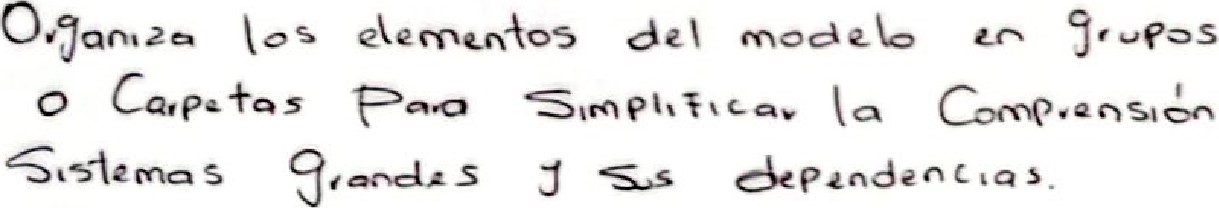 Organiza los elementos del modelo en grupos
o Carpetas Para Simplificar la Comprensión
Sistemas grandes y sus dependencias.